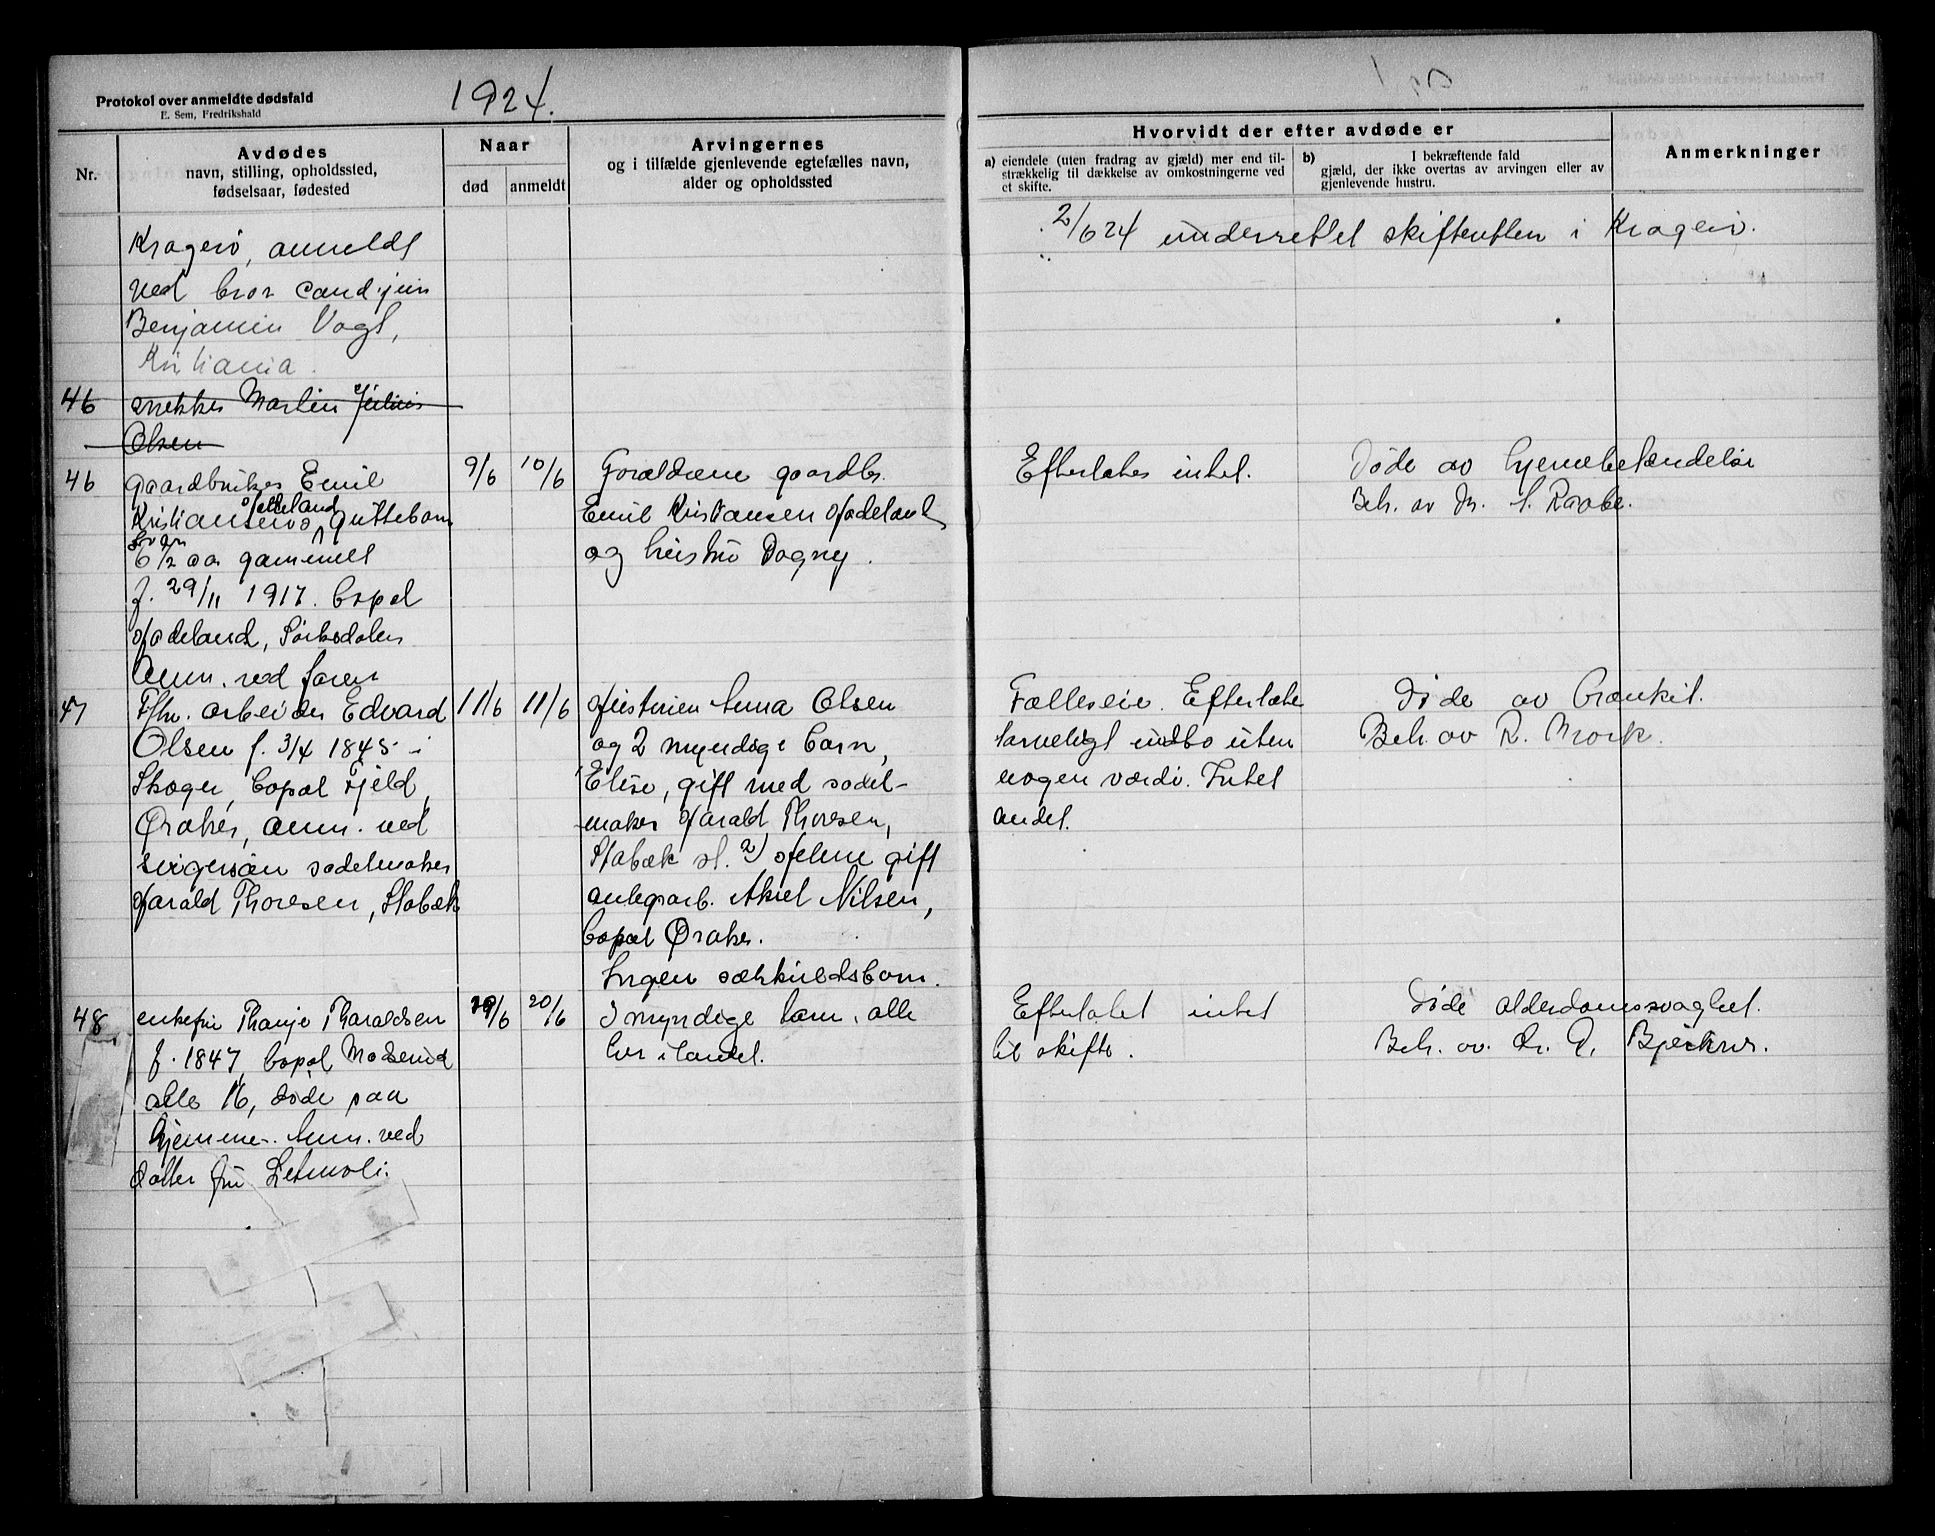 Protokol over anmeldte dødsfald
E. Sem, Fredrikshald
1924.
Nr.
Avdødes
navn, stilling, opholdssted,
fødselsaar, fødested
Naar
død
anmeldt
Arvingernes
og i tilfælde gjenlevende egtefælles navn,
alder og opholdssted
Hvorvidt der efter avdøde er
a) eiendele (uten fradrag av gjæld) mer end til-
strækkelig til dækkelse av omkostningerne ved
et skifte.
b) I bekræftende fald
gjæld, der ikke overtas av arvingen eller av
gjenlevende hustru.
Anmerkninger
Kragerø, anmeldt
ved bror cand. jur.
Benjamin Vogt,
Kristiania.
2/6 24 underrettet skifteretten i Kragerø.
46 snekker Martin Julius
Olsen
46 gaardbruker Emil
Kristiansens Hadeland guttebarn
6 1/2 aar gammelt
f. 29/11 1917. bopæl
Hadeland, Sørkedalen
Anm. ved faren
9/6
10/6
Forældrene gaardbr.
Emil Kristiansen Hadeland
og hustru Dagny.
Efterlates intet.
Døde av hjernebetændelse
Beh. av Dr. S. Raabe.
47 Fhv. arbeider Edvard
Olsen f. 3/4 1845 i
Skoger, bopæl Fjeld,
Øraker, anm. ved
svigersøn sadelmaker
Harald Thoresen, Stabæk
11/6
11/6
Hustruen Anna Olsen
og 2 myndige barn,
Elise, gift med sadel-
maker Harald Thoresen,
Stabæk st. 2) Helene gift
anlegsarb. Aksel Nilsen,
bopæl Øraker.
Ingen særkuldsbarn.
Fælleseie. Efterlater
tarveligt indbo uten
nogen værdi. Intet
andet.
Døde av bronkit.
Beh. av R. Mork.
48 enkefru Thanje Tharaldsen
f. 1847, bopæl Madserud
alle 16, døde paa
hjemme. Anm. ved
datter fru Letmoli.
19/6
20/6
3 myndige barn, alle
her i landet.
Efterlatt intet
til skifte.
Døde alderdomssvaghet.
Beh. av. Dr. D. Bjerknes.